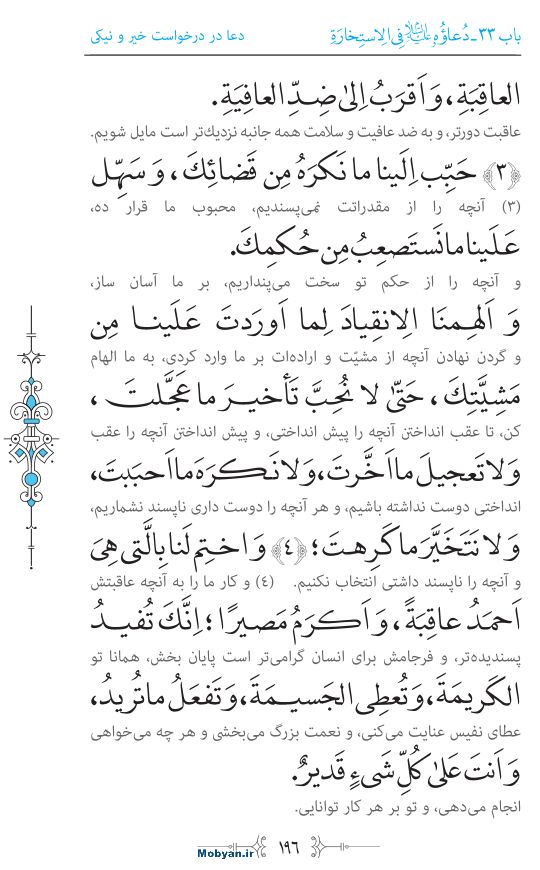 باب ۳۳ـ دُعاؤُهُ عليه السلام فِی الِاستِخارَةِ
دعا در درخواست خیر و نیکی
العاقِبَةِ، وَ اَقرَبُ اِلیٰ ضِدِّ العافِیَةِ.
عاقبت دورتر، و به ضد عافیت و سلامت همه جانبه نزدیك‌تر است مایل شویم.
﴿۳﴾ حَبِّب اِلَینا ما نَکرَهُ مِن قَضائِكَ، وَ سَهِّل
(۳) آنچه را از مقدراتت نمی‌پسندیم، محبوب ما قرار ده،
عَلَینا ما نَستَصعِبُ مِن حُکمِكَ.
و آنچه را از حکم تو سخت می‌پنداریم، بر ما آسان ساز،
وَ اَلهِمنَا الِانقِیادَ لِما اَورَدتَ عَلَینا مِن
و گردن نهادن آنچه از مشیّت و اراده‌ات بر ما وارد کردی، به ما الهام
مَشِیَّتِكَ، حَتّیٰ لا نُحِبَّ تَأخیرَ ما عَجَّلتَ،
کن، تا عقب انداختن آنچه را پیش انداختی، و پیش انداختن آنچه را عقب
وَ لا تَعجیلَ ما اَخَّرتَ، وَ لا نَکرَهَ ما اَحبَبتَ،
انداختی دوست نداشته باشیم، و هر آنچه را دوست داری ناپسند نشماریم،
وَ لا نَتَخَیَّرَ ما کَرِهتَ؛ ﴿٤﴾ وَ اختِم لَنا بِالَّتی هِیَ
و آنچه را ناپسند داشتی انتخاب نکنیم. (٤) و کار ما را به آنچه عاقبتش
اَحمَدُ عاقِبَةً، وَ اَکرَمُ مَصیرًا؛ اِنَّكَ تُفیدُ
پسندیده‌تر، و فرجامش برای انسان گرامی‌تر است پایان بخش، همانا تو
الکَریمَةَ، وَ تُعطِی الجَسیمَةَ، وَ تَفعَلُ ما تُریدُ،
عطای نفیس عنایت می‌کنی، و نعمت بزرگ می‌بخشی و هر چه می‌خواهی
وَ اَنتَ عَلیٰ کُلِّ شَیءٍ قَدیرٌ.
انجام می‌دهی، و تو بر هر کار توانایی.
۱۹۶
Mobyan.ir